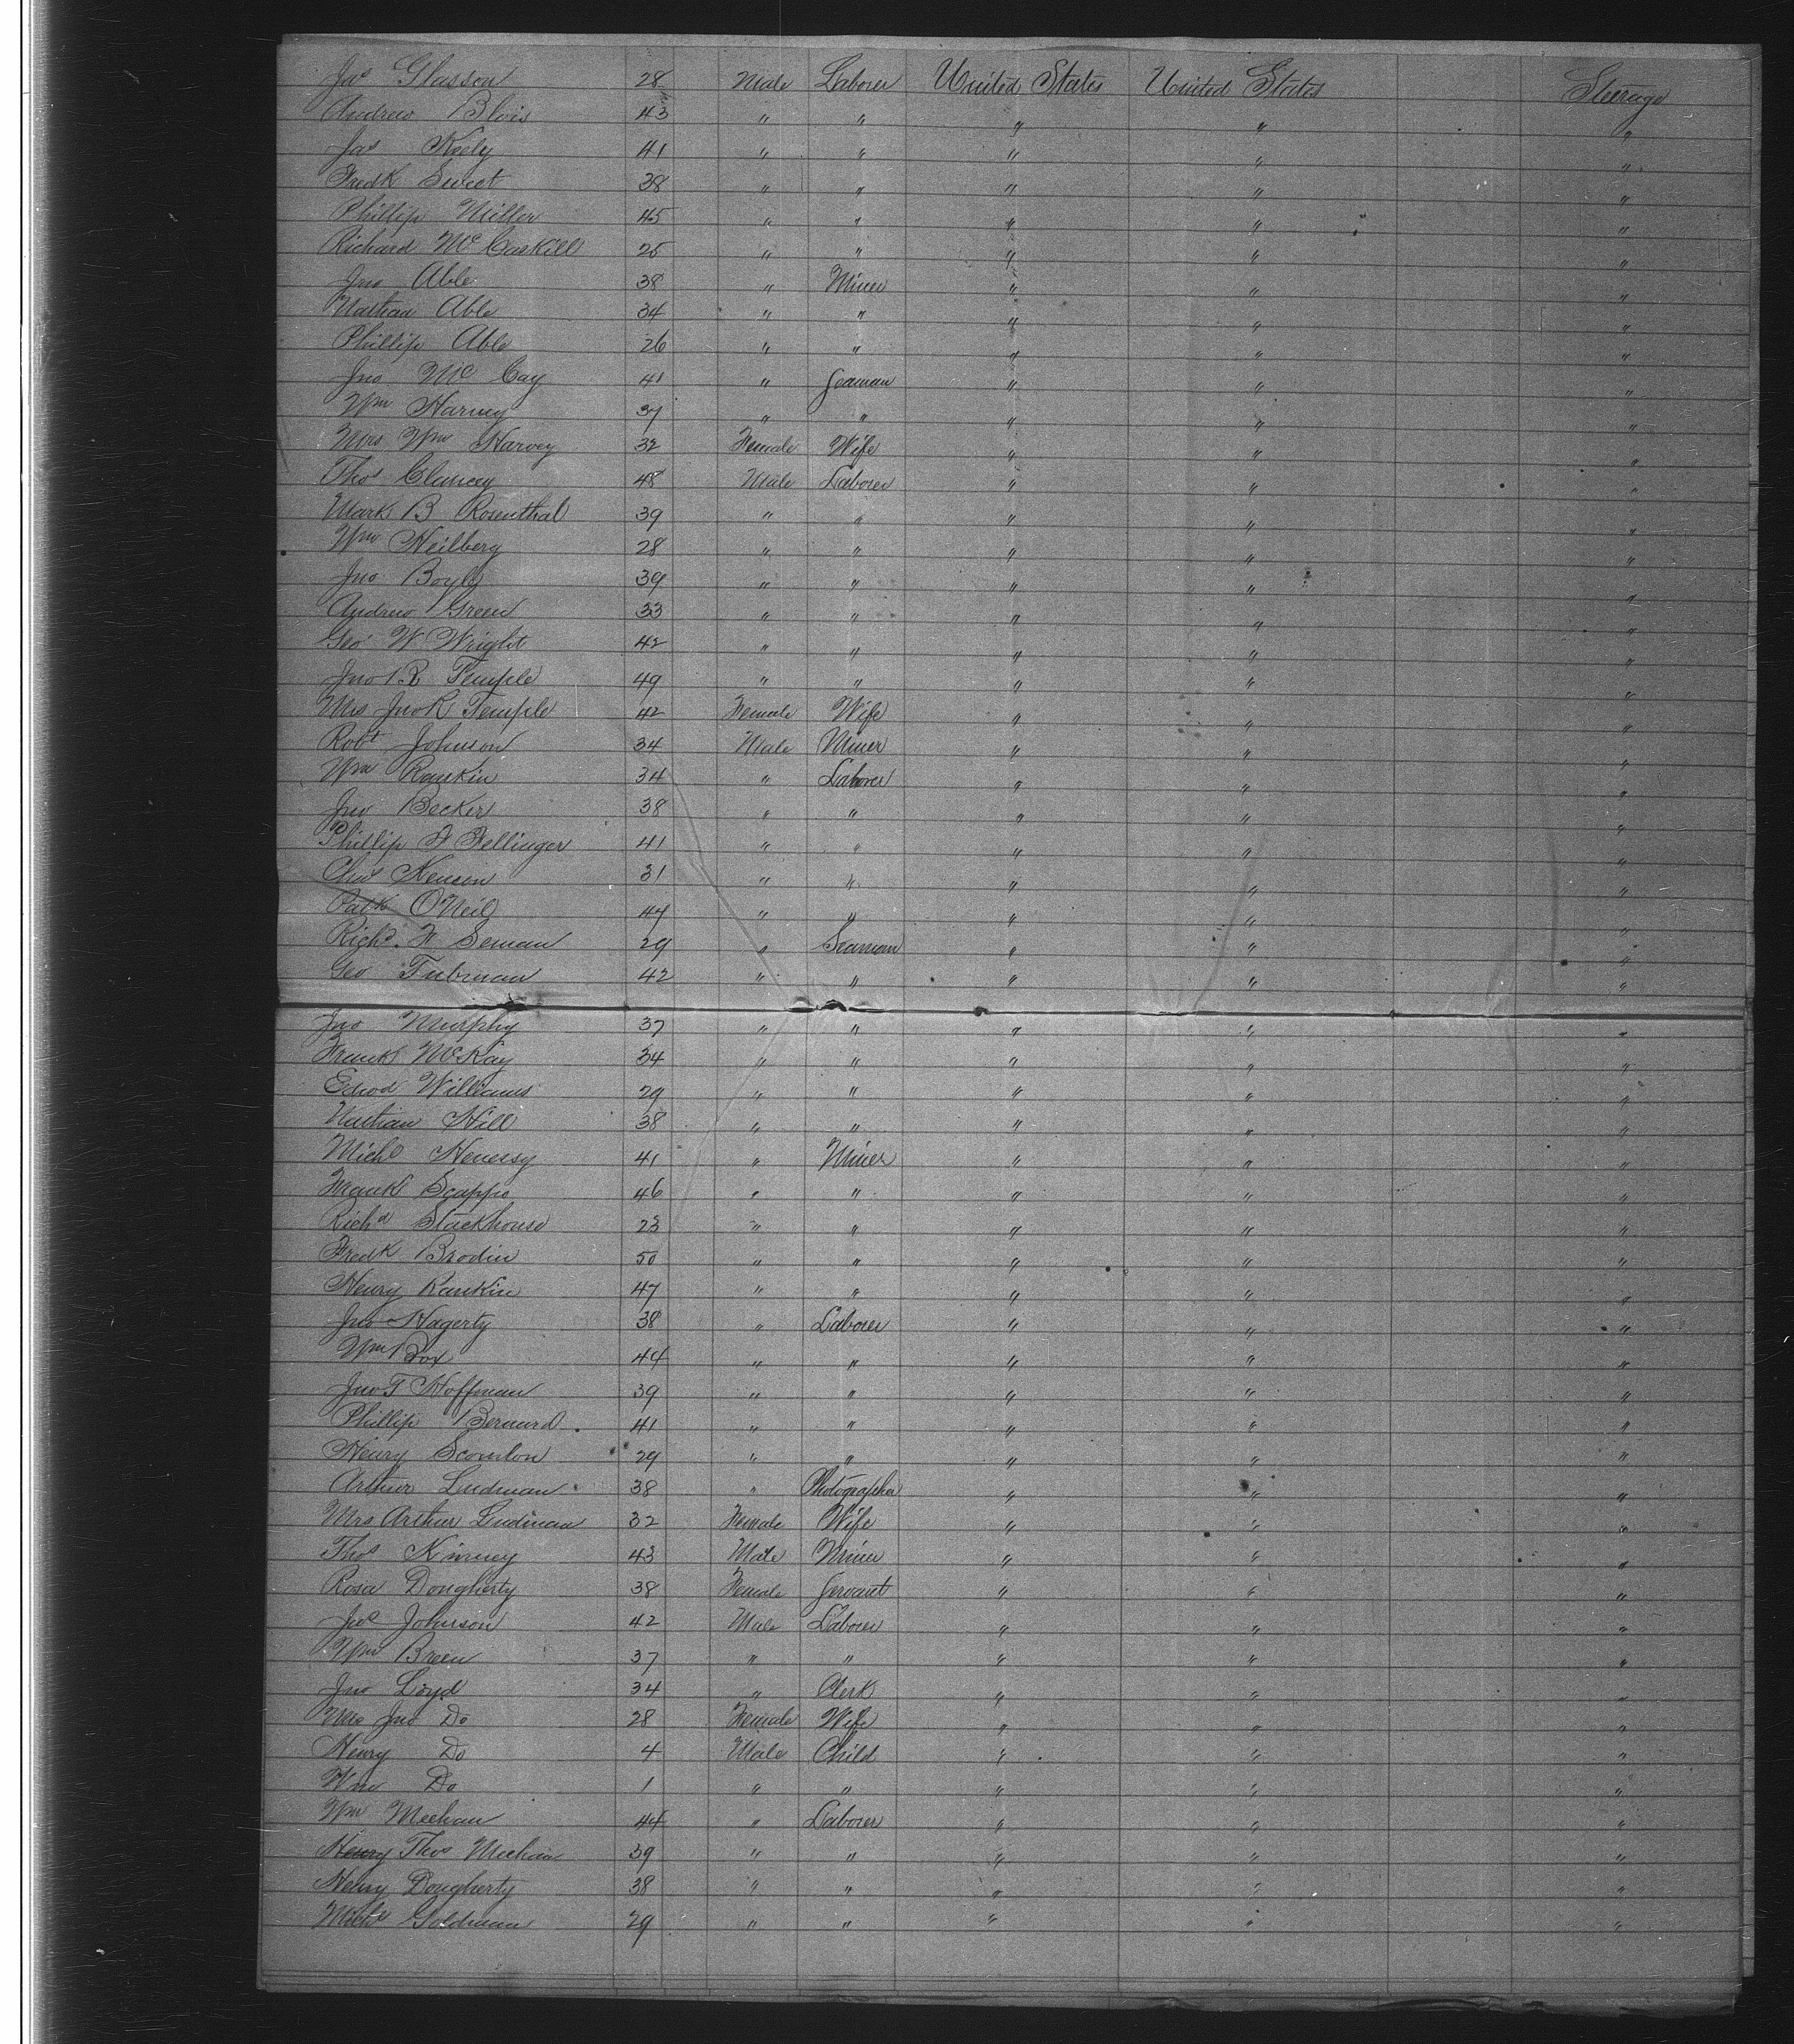 Jas Glasson 28 Male Laborer United States United States Steerage
Andrew Blois 43 " " " " "
Jas Keely 41 " " " " "
Fredk Sweet 38 " " " " "
Phillip Miller 45 " " " " "
Richard McCaskill 25 " " " " "
Jno Able 38 " Miner " " "
Nathan Able 34 " " " " "
Phillip Able 26 " " " " "
Jno McCay 41 " Seaman " " "
Wm Harvey 37 " " " " "
Mrs Wm Harvey 32 Female Wife " " "
Thos Clancey 48 Male Laborer " " "
Mark B Rosenthal 39 " " " " "
Wm Heilberg 28 " " " " "
Jno Boyle 39 " " " " "
Andrew Green 33 " " " " "
Geo W Wright 42 " " " " "
Jno R Temple 49 " " " " "
Mrs Jno R Temple 42 Female Wife " " "
Robt Johnson 34 Male Miner " " "
Wm Rankin 34 " Laborer " " "
Jno Becker 38 " " " " "
Phillip F Fellinger 41 " " " " "
Chas Kenson 31 " " " " "
Patk O'Neil 47 " " " " "
Richd. H Seman 29 " Seaman " " "
Geo Tubman 42 " " " " "
Jno Murphy 37 " " " " "
Frank McKay 34 " " " " "
Edwd Williams 29 " " " " "
Nathan Hill 38 " " " " "
Michl Henessy 41 " Miner " " "
Frank Scappo 46 " " " " "
Richd Stackhouse 23 " " " " "
Fredk Brodin 50 " " " " "
Henry Rankin 47 " " " " "
Jno Hagerty 38 " Laborer " " "
Wm Box 44 " " " " "
Jno T Hoffman 39 " " " " "
Phillip Bernard 41 " " " " "
Henry 29 " " " " "
Arthur Ludman 38 " Photographer " " "
Mrs Arthur Ludman 32 Female Wife " " "
Thos Kinney 43 Male Miner " " "
Rosa Dougherty 38 Female Servant " " "
Jas Johnson 42 Male Laborer " " "
Wm Breen 37 " " " " "
Jno Loyd 34 " Clerk " " "
Mrs Jno Do 28 Female Wife " " "
Henry Do 4 Male Child " " "
Wm Do 1 " " " " "
Wm Meehan 44 " Laborer " " "
Henry Thos Meehan 39 " " " " "
Henry Dougherty 38 " " " " "
Michl Goldman 29 " " " " "